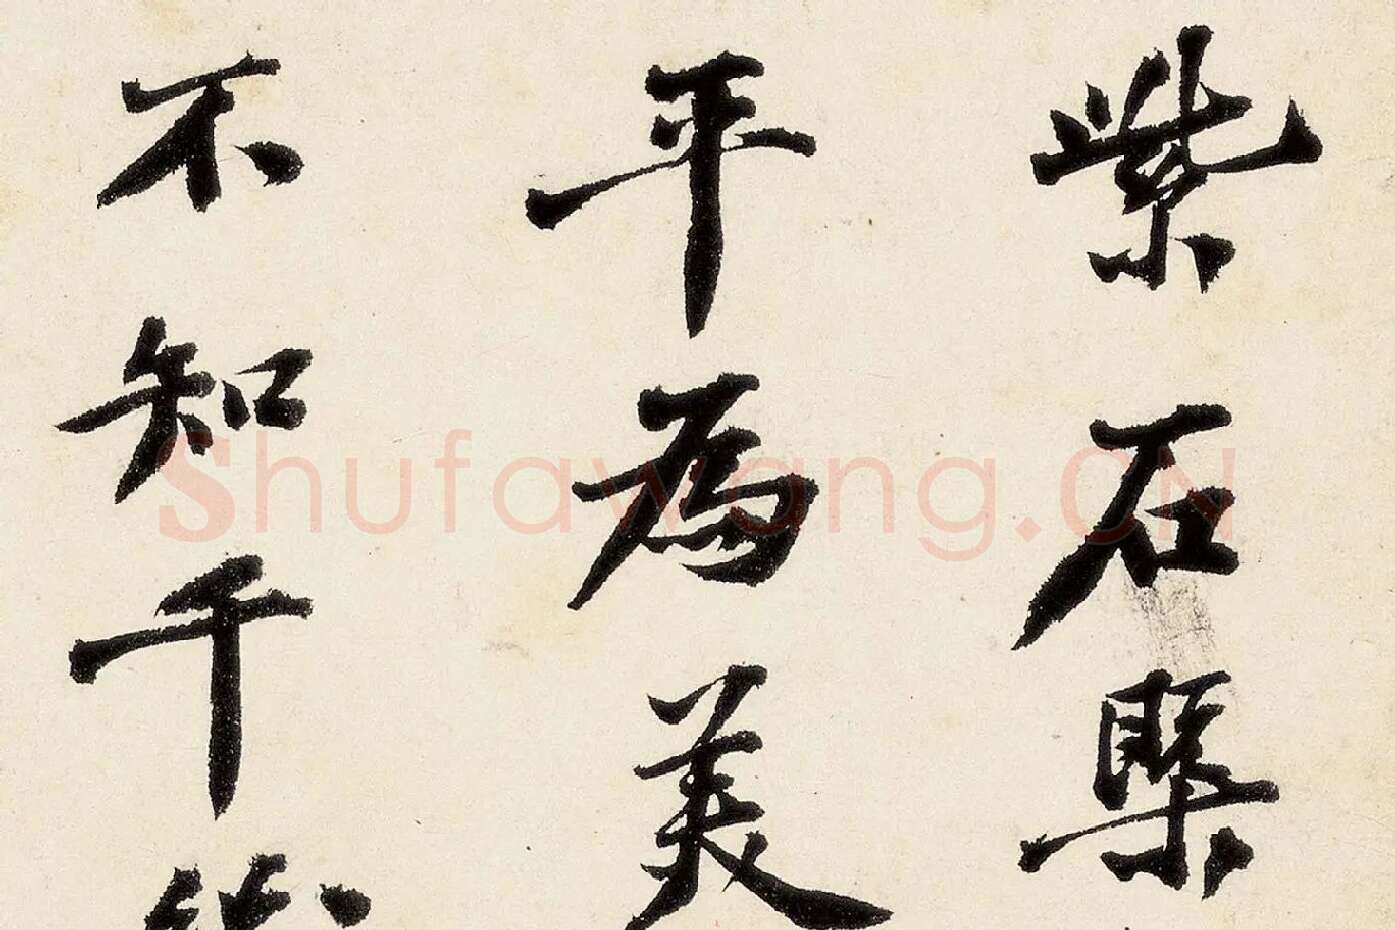 紫石槩
平為美
不知千
Shufawang.CN